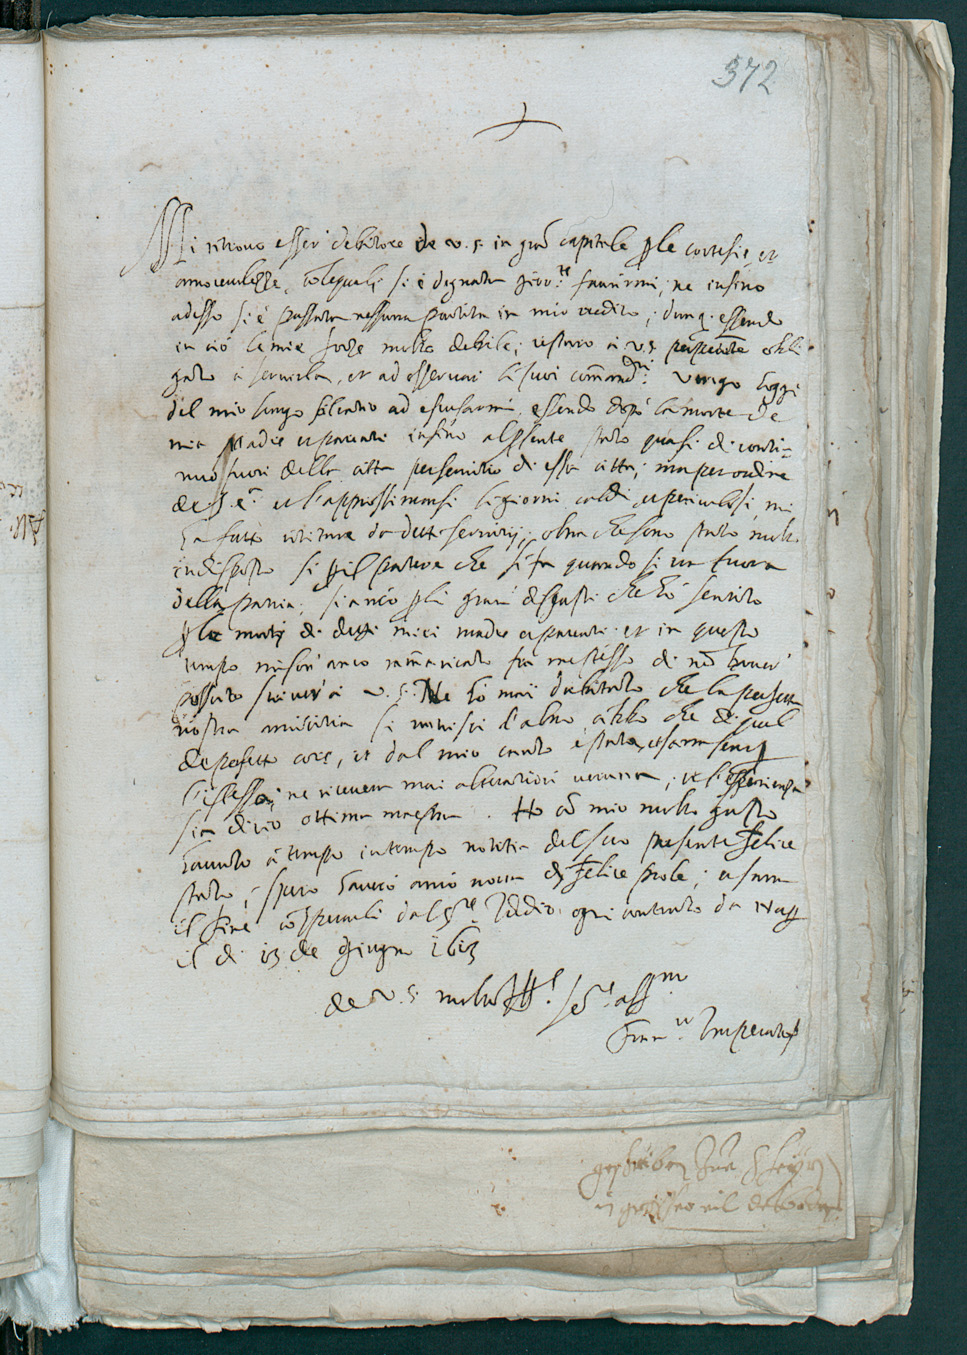 372
Mi ritrovo esser debitore de v. s. in grā capitale ple cortesie, et
amorevolezze, colequali si è dignata favirmi, ne insino
adesso si è passata nessuna partita in mio credito; dunq. essendo
in ciò le mie forze molto debile; restarò à v. s. obli
gato à servirla, et ad osservar li suoi command.ti vengo hoggi
dil mio lungo silentio ad escusarmi essendo dopò la morte de
mia Madre et parenti insino al psente stato quasi di conti-
nuo fuori della citta per servitio di essa citta; ma per ordine
de S. E. et l'approssimarsi li giorni caldi et periculosi, mi
hà fatto ritirar da detti servitij; oltra che sono stato molto
indisposto si pil patire che si fa quando si va fuora
della patria, si ancò pli gran disgusti che hò sentito
ple morti di detti miei madre et parenti et in questo
tempo mi son anco ramaricato fra me stesso di nō haver
possuto scriver à v. s. Ne hò mai dubitato che la perfetta
nostra amicitia si l'altro che di quel
de perfetto core, et dal mio canto è stato, et sarra semp
l'istesso; ne ricevera mai alterationi veruna; et l'esperienza
sia di ciò ottima maestra. Ho cō mio molto gusto
havuto à tempo in tempo notitia del suo presente felice
stato; spero haverò ancò nova di felice prole; et farrò
il fine dal S.re Iddio ogni contento da Nap
il di 13 de Giugno 1613
de v. s. molto Ill. Ser. aff.mo
Fran.co Imperato
geschriben